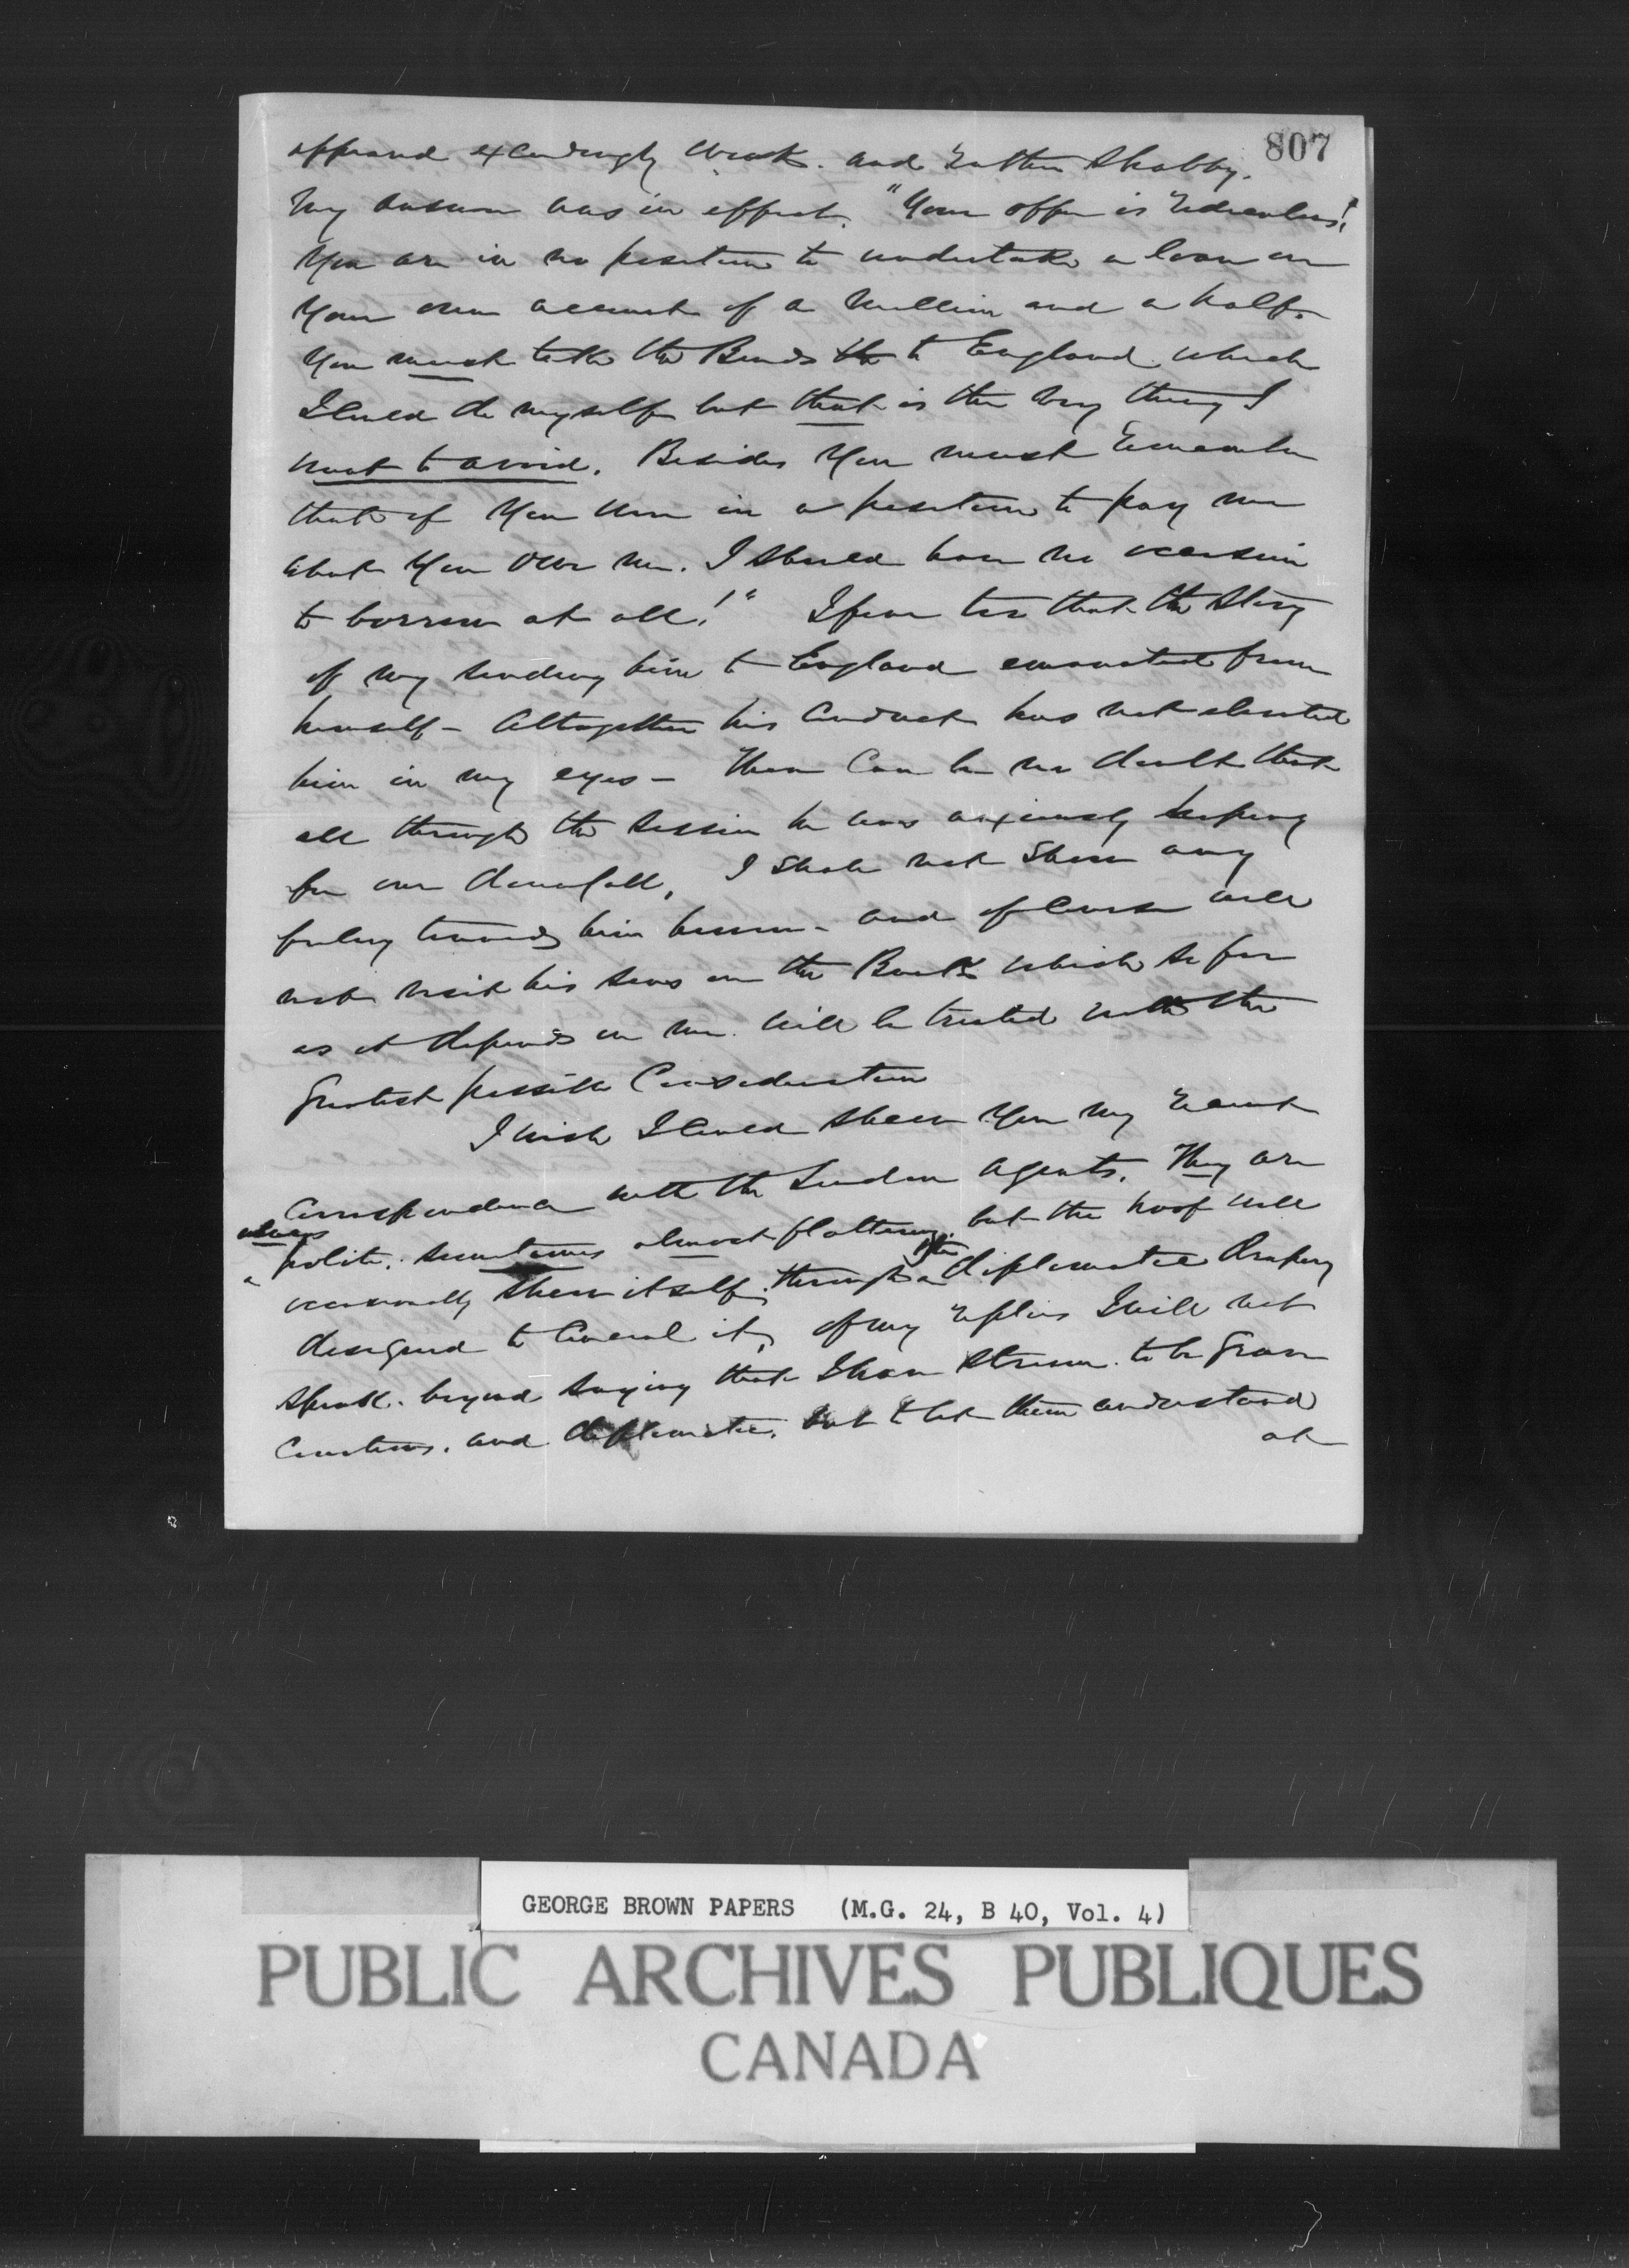 807
appeared exceedingly weak. and rather shabby.
My answer was in effect. "Your offer is ridiculous!
You are in no position to undertake a loan on
your own account of a million and a half.
You must take the Bonds to England which
I could do myself but that is the very thing I
want to avoid. Besides you must remember
that if you were in a position to pay me
what you owe me. I should have no occasion
to borrow at all!" I fear too that the story
of my sending him to England emanated from
himself - Altogether his conduct has not elevated
him in my eyes - There can be no doubt that
all through the session he was anxiously hoping
for our downfall. I shall not show any
feeling towards him however - and of course will
not visit his sins on the Bank which so far
as it depends on me. will be treated with the
greatest possible Consideration
I wish I could show you my recent
Correspondence with the London Agents. They are
always
polite. sometimes almost flattering. but the hoof will
occasionally show itself. through the diplomatic drapery
designed to Conceal it, of my replies I will not
speak. beyond saying that I have striven. to be grave
Courteous. and diplomatic. but to let them understand
at
GEORGE BROWN PAPERS (M.G. 24, B 40, Vol. 4)
PUBLIC ARCHIVES PUBLIQUES
CANADA